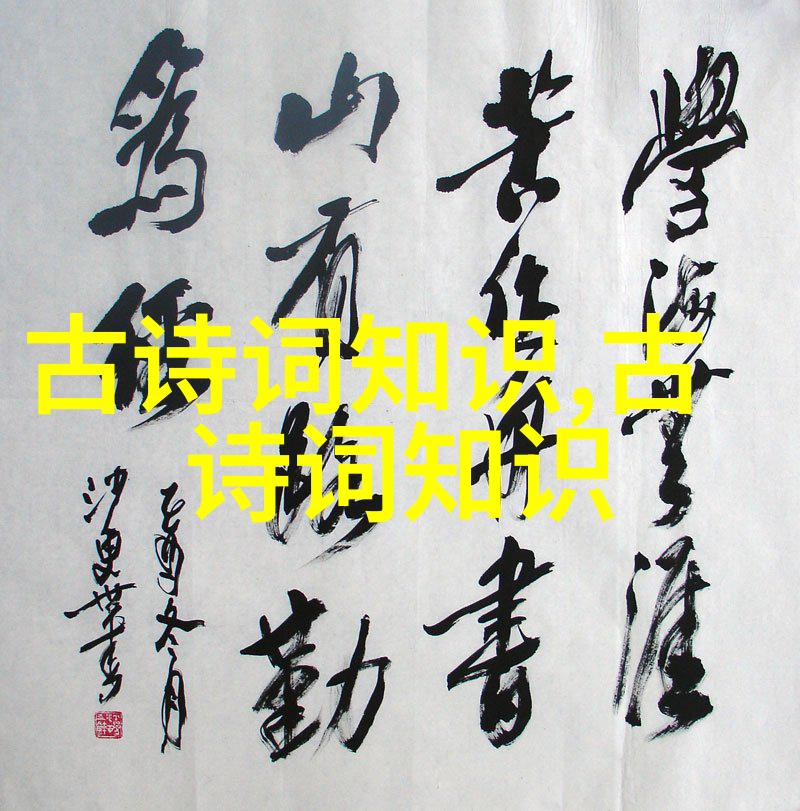 學海無涯
苦作舟書
山有路勤
為徑
乙酉冬月
沙更世書
古诗词知识,古
诗词知识